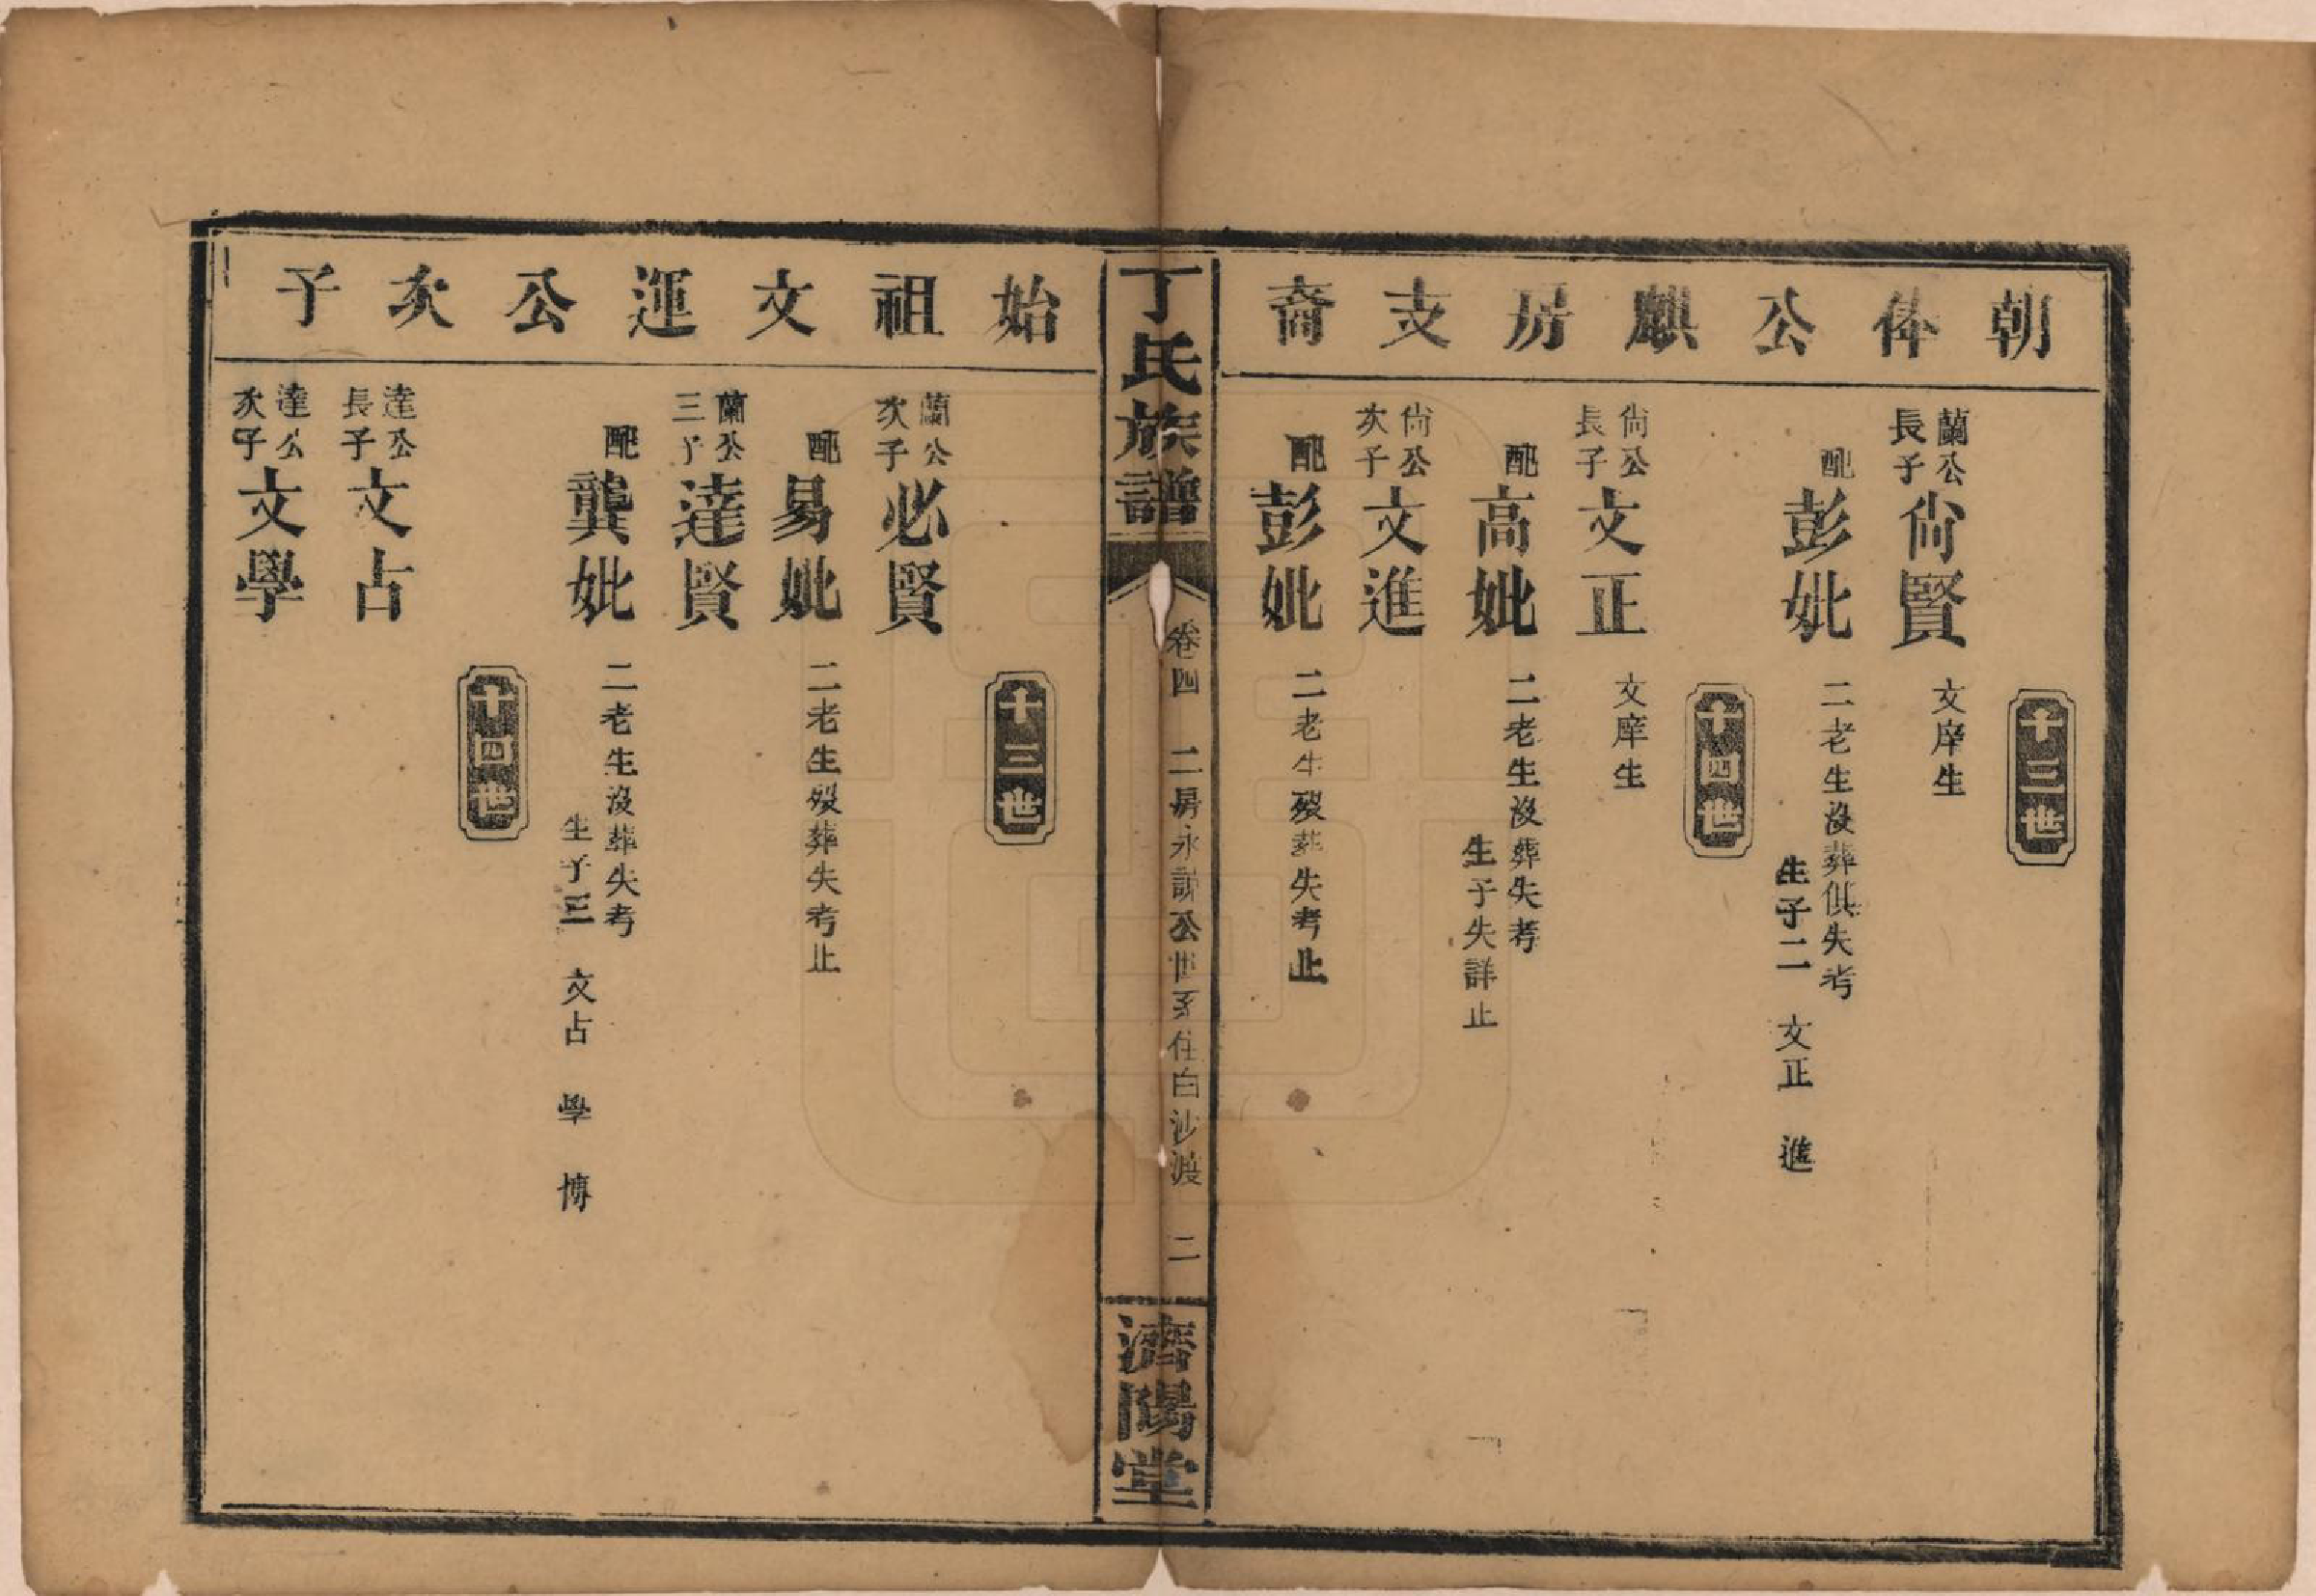 朝俸公麒房支裔
十三世
蘭公長子尙賢 文庠生
配彭妣 二老生沒葬俱失考
生子二 文正 進
十四世
尙公長子文正 文庠生
配高妣 二老生沒葬失考
生子失詳止
尙公次子文進
配彭妣 二老生歿葬失考止
丁氏族譜 卷四 二房永訓公世系住白沙渡 二 濟陽堂
始祖文運公次子
十三世
蘭公次子必賢
配易妣 二老生歿葬失考止
蘭公三子達賢
配龔妣 二老生沒葬失考
生子三 文占 學 博
十四世
達公長子文占
達公次子文學